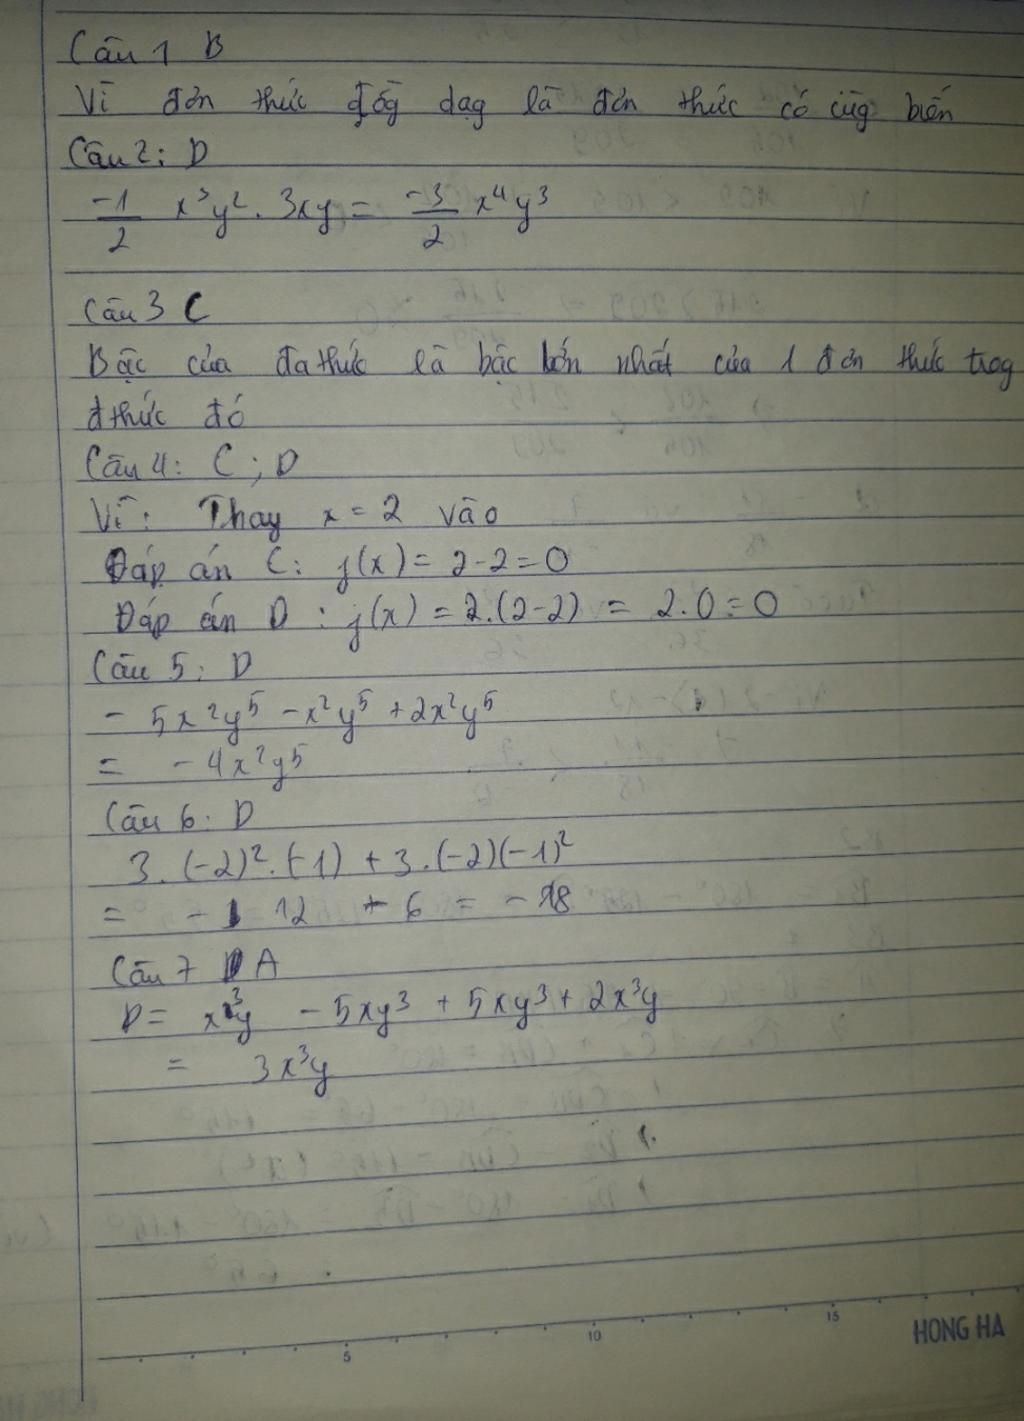 Câu 1 B
Vì đơn thức đồg dạg là đơn thức có cùg biến
Câu 2: D
-1/2 x³y² . 3xy = -3/2 x⁴y³
Câu 3 C
Bậc của đa thức là bậc lớn nhất của 1 đơn thức trog
đthức đó
Câu 4: C ; D
Vì: Thay x = 2 vào
Đáp án C: f(x) = 2-2 = 0
Đáp án D : f(x) = 2.(2-2) = 2.0 = 0
Câu 5: D
- 5x²y⁵ - x²y⁵ + 2x²y⁵
= - 4x²y⁵
Câu 6: D
3.(-2)².(-1) + 3.(-2)(-1)²
= - 12 - 6 = -18
Câu 7 A
D = x³y - 5xy³ + 5xy³ + 2x³y
= 3x³y
5 10 15
HONG HA